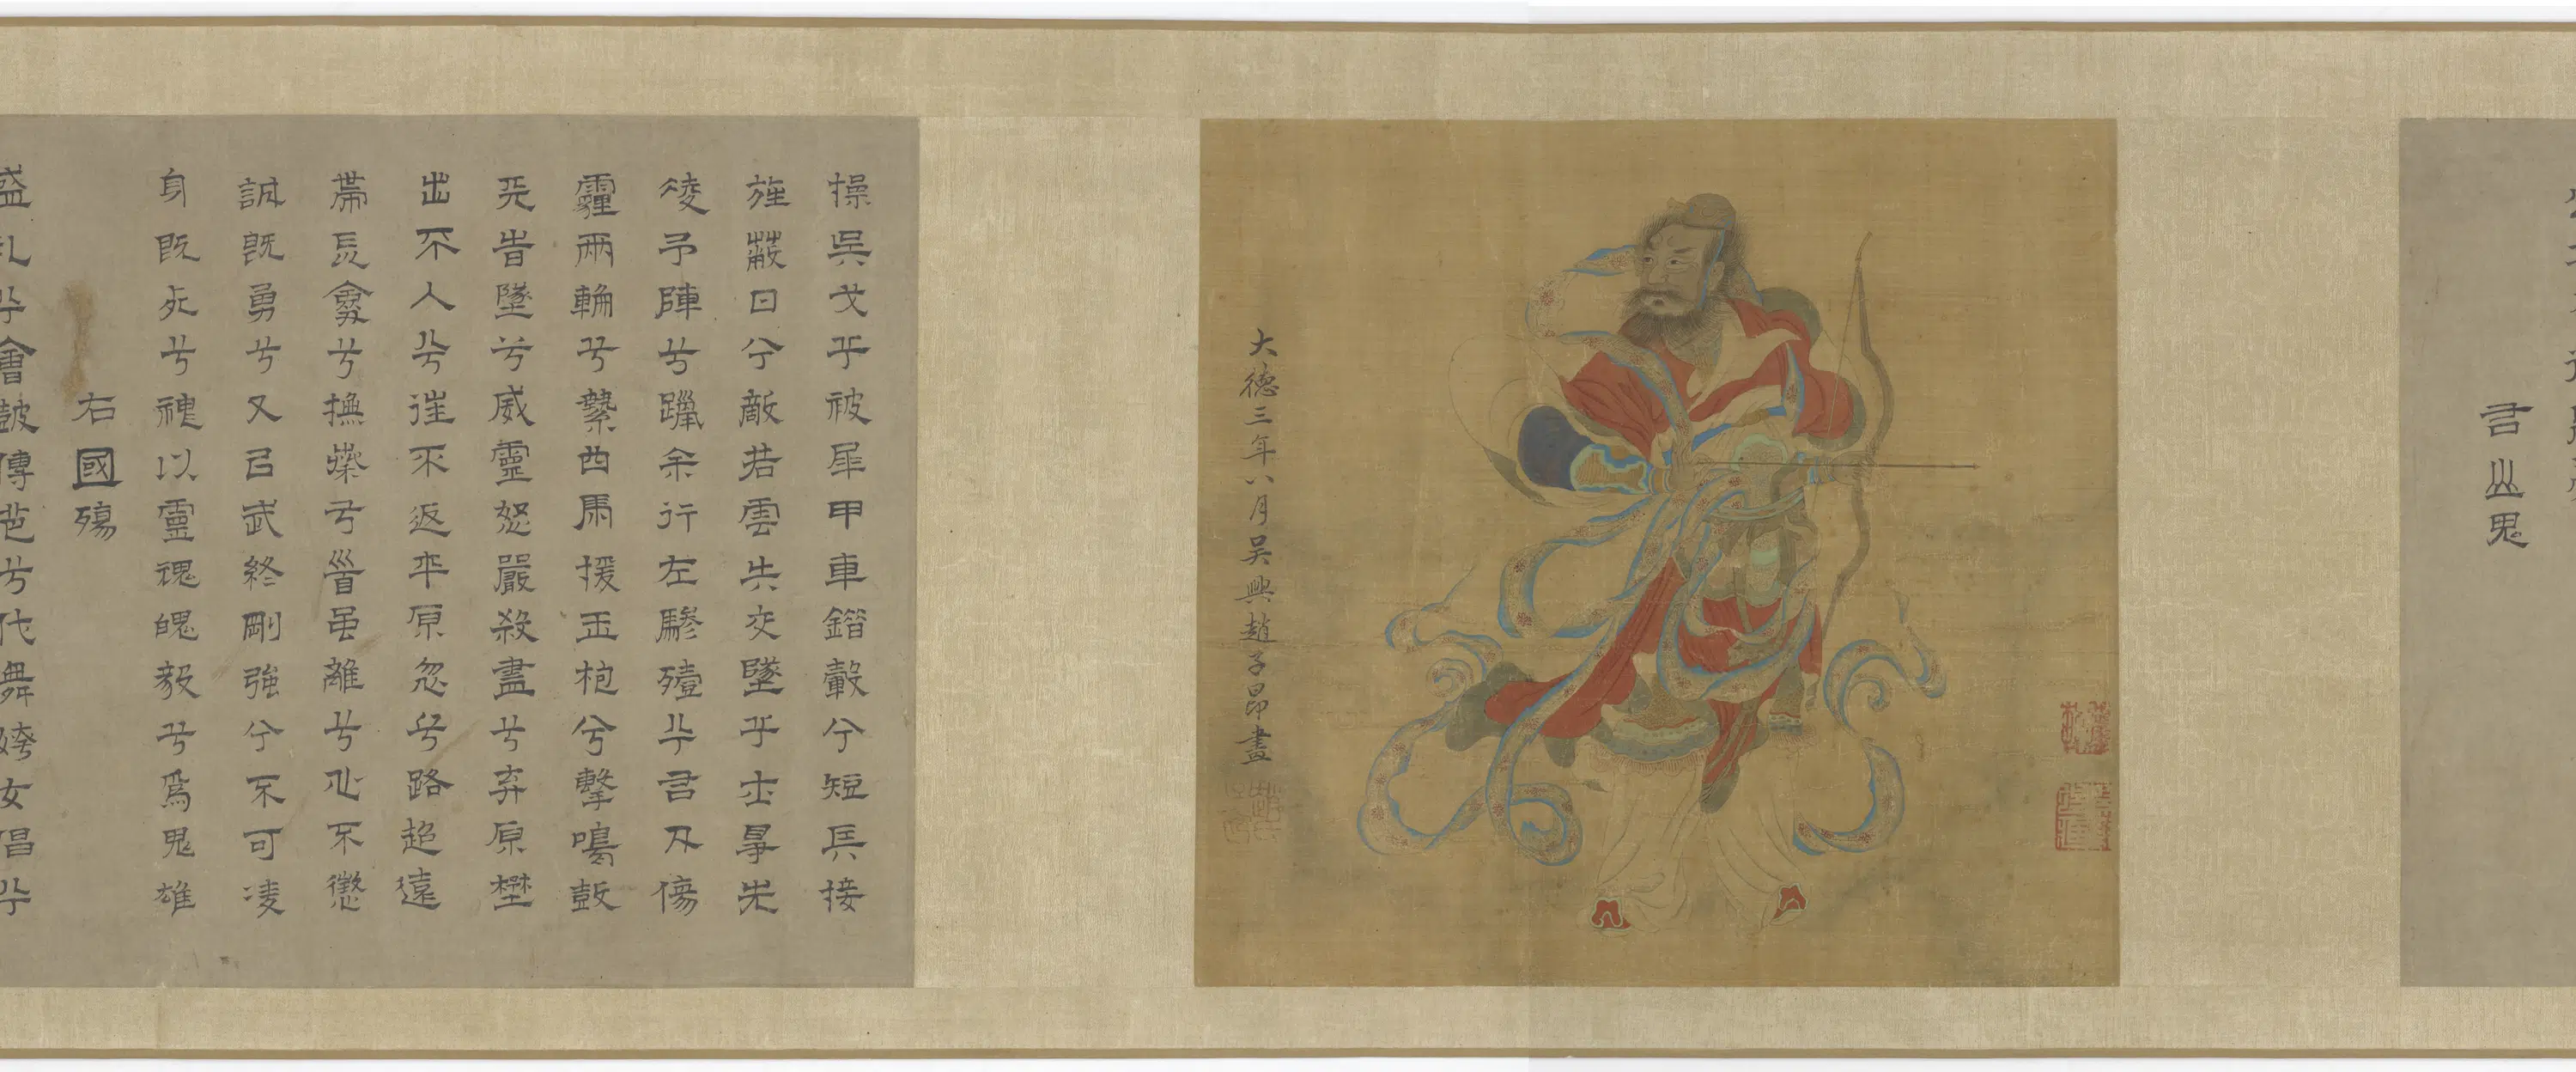 右山鬼
大德三年八月吳興趙子昂畫
操吳戈乎被犀甲車錯轂兮短兵接
旌蔽日兮敵若雲矢交墜乎士爭先
凌予陣兮躐余行左驂殪兮右刃傷
霾兩輪兮縶四馬援玉枹兮擊鳴鼓
天時墜兮威靈怒嚴殺盡兮弃原壄
出不入兮往不返平原忽兮路超遠
帶長劍兮挾秦弓首雖離兮心不懲
誠既勇兮又以武終剛強兮不可凌
身既死兮神以靈魂魄毅兮為鬼雄
右國殤
盛礼兮會鼓傳芭兮代舞姱女倡兮